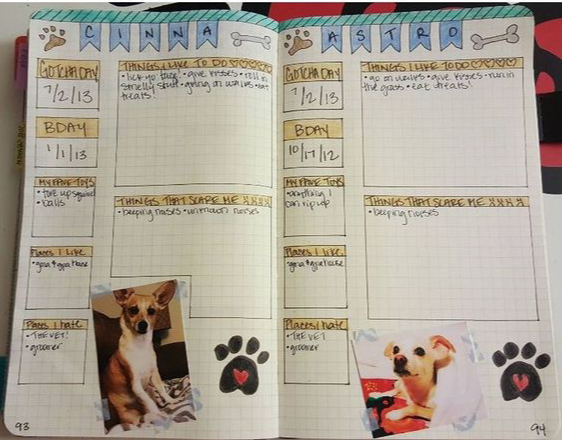 CINNA
GOTCHA DAY
7/2/13
BDAY
1/1/13
MY FAVE TOYS
• balls
Places I Like
Places I hate
• THE VET!
• groomer
THINGS I LIKE TO DO ♡♡♡♡
• lick yo face • give kisses • roll in
smelly stuff • going on walks • eat
treats!
THINGS THAT SCARE ME XXXX
• beeping noises • unknown noises
93
ASTRO
GOTCHA DAY
7/2/13
BDAY
10/17/12
MY FAVE TOYS
• anything I
can rip up
Places I like
Places I hate
• THE VET
• groomer
THINGS I LIKE TO DO ♡♡♡♡
• go on walks • give kisses • run in
the grass • eat treats!
THINGS THAT SCARE ME XXXX
• beeping noises
94